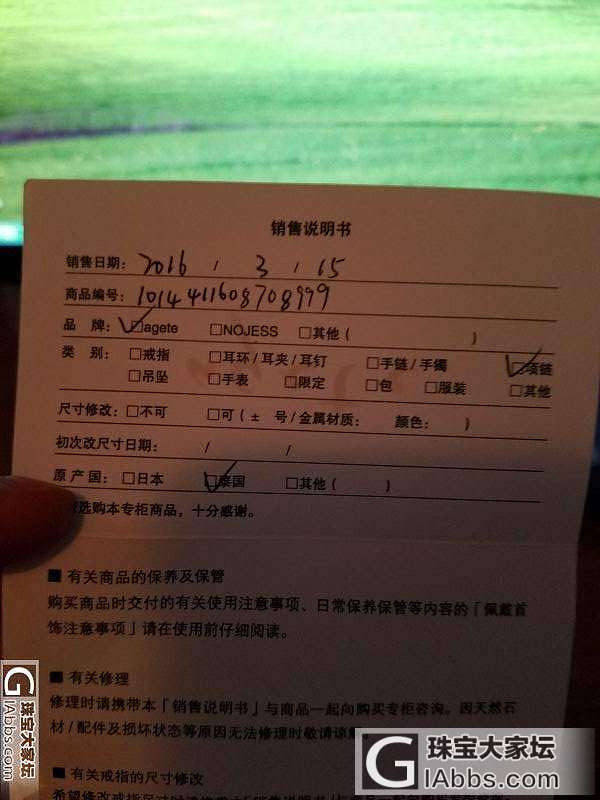 销售说明书
销售日期: 2016 / 3 / 15
商品编号: 1014411608708999
品 牌: ☑agete □NOJESS □其他( )
类 别: □戒指 □耳环/耳夹/耳钉 □手链/手镯 ☑项链
□吊坠 □手表 □限定 □包 □服装 □其他
尺寸修改: □不可 □可(± 号/金属材质: 颜色: )
初次改尺寸日期: / /
原产国: □日本 ☑泰国 □其他( )
选购本专柜商品,十分感谢。
■ 有关商品的保养及保管
购买商品时交付的有关使用注意事项、日常保养保管等内容的「佩戴首
饰注意事项」请在使用前仔细阅读。
■ 有关修理
修理时请携带本「销售说明书」与商品一起向购买专柜咨询。因天然石
材/配件及损坏状态等原因无法修理时敬请谅
■ 有关戒指的尺寸修改
希望修改戒指尺寸时请
G 珠宝大家坛
GIAbbs.com
G 珠宝大家坛
GIAbbs.com